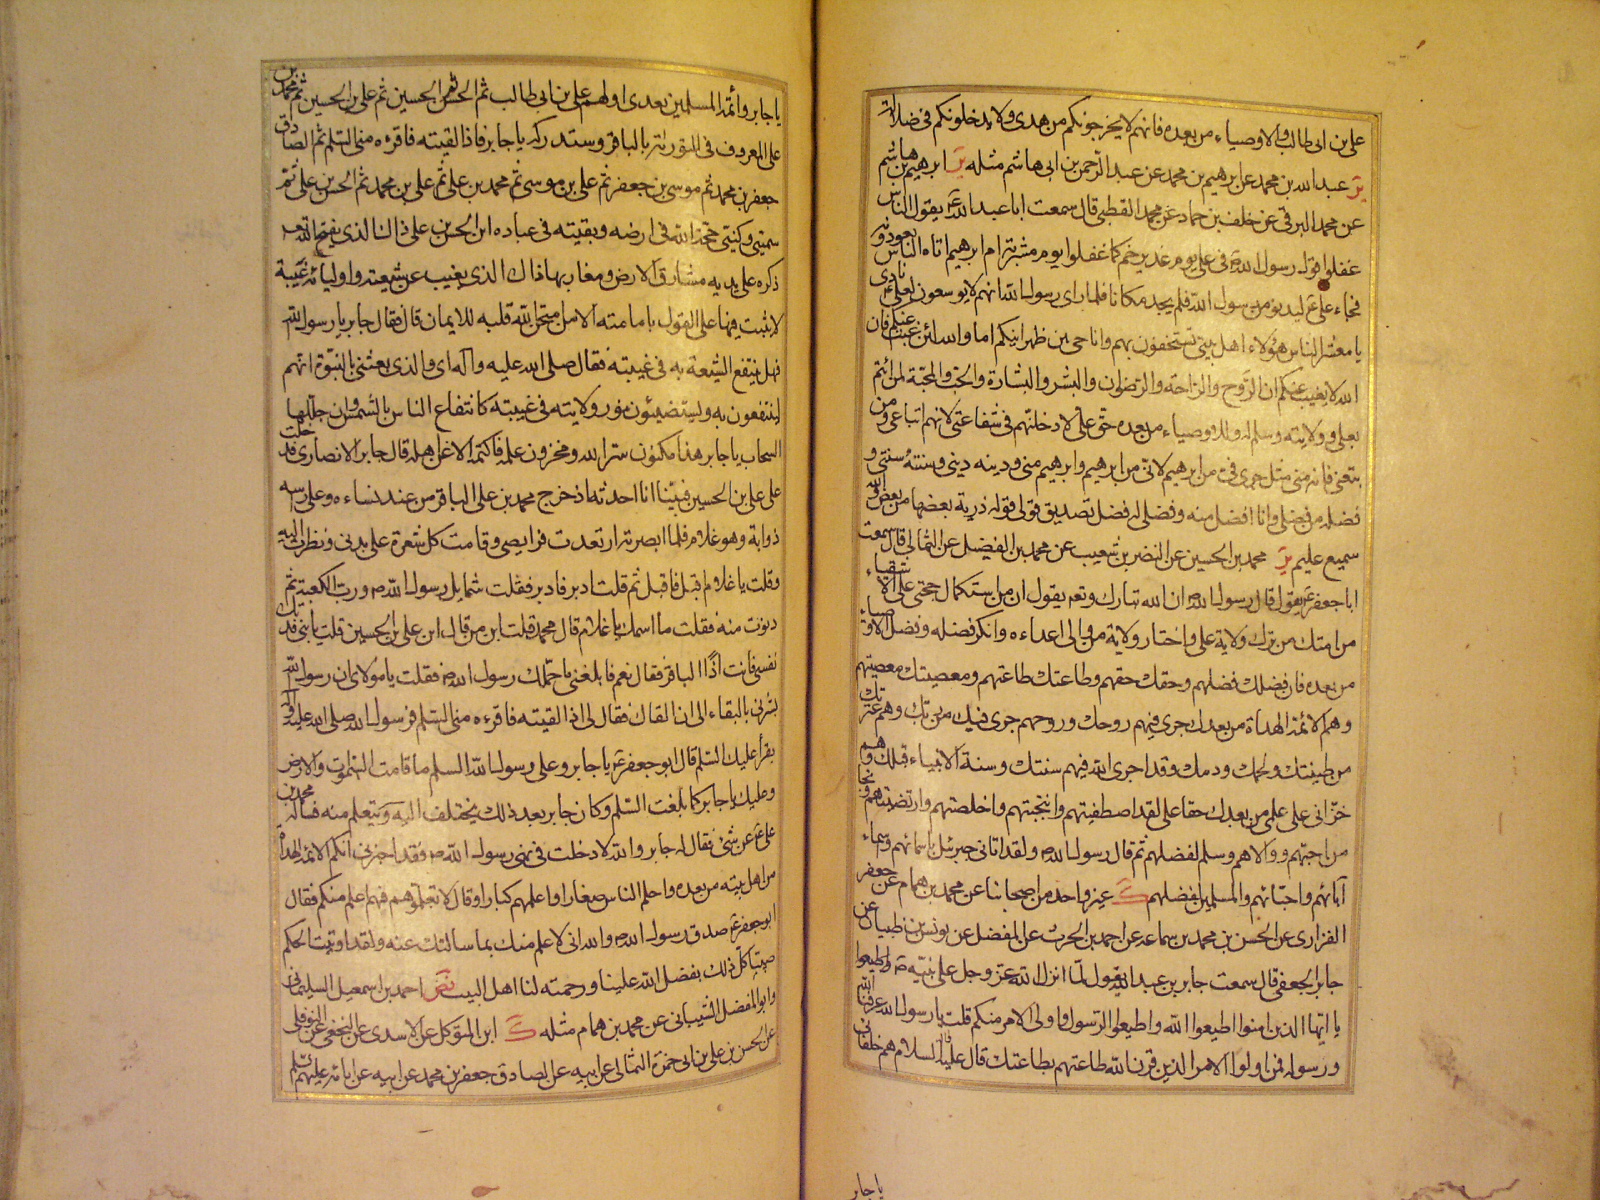 علي بن ابى طالب والاوصياء من بعده فانهم لا يخرجونكم من هدى ولا يدخلونكم فى ضلالة
ير عبد الله بن محمد عن ابرهيم بن محمد عن عبد الرحمن بن ابى هاشم مثله ير ابرهيم بن هاشم
عن محمد البرقى عن خلف بن حماد عن محمد القطبى قال سمعت ابا عبد الله ع يقول الناس
غفلوا قول رسول الله ص فى على يوم غدير خم كما غفلوا يوم مشربة ام ابرهيم اتاه الناس يعودونه
فجاء على ع ليدنو من رسول الله فلم يجد مكانا فلما راى رسول الله انهم لا يوسعون لعلى ع نادى
يا معشر الناس هؤلاء اهل بيتى تستخفون بهم وانا حى بين ظهرانيكم اما والله لئن غبت عنكم فان
الله لا يغيب عنكم ان الروح والراحة والرضوان والبشر والبشارة والحب والمحبة لمن ائتم
بعلى وولايته وسلم له وللاوصياء من بعده حق على لادخلنهم فى شفاعتى لانهم اتباعى ومن
تبعنى فانه منى مثل جرى فى من ابرهيم لانى من ابرهيم وابرهيم منى ودينه دينى وسنته سنتى و
فضله من فضلى وانا افضل منه وفضلى له فضل تصديق قولى قوله ذرية بعضها من بعض والله
سميع عليم ير محمد بن الحسين عن النضر بن شعيب عن محمد بن الفضيل عن الثمالى قال سمعت
ابا جعفر ع يقول قال رسول الله ص ان الله تبارك وتع يقول ان من استكمال حجتى على الاشقياء
من امتك من ترك ولاية على واختار ولاية من والى اعداءه وانكر فضله وفضل الاوصياء
من بعده فان فضلك فضلهم وحقك حقهم وطاعتك طاعتهم ومعصيتك معصيتهم
وهم الائمة الهداة من بعدك جرى فيهم روحك وروحهم جرى فيك من ربك وهم عترتك
من طينتك ولحمك ودمك وقد اجرى الله فيهم سنتك وسنة الانبياء قبلك وهم
خزانى على علمى من بعدك حقا على لقد اصطفيتهم وانتجبتهم واخلصتهم وارتضيتهم ونجا
من احبهم ووالاهم وسلم لفضلهم ثم قال رسول الله ص ولقد اتانى جبرئيل باسمائهم واسماء
آبائهم واحبائهم والمسلمين لفضلهم ك غير واحد من اصحابنا عن محمد بن همام عن جعفر
الفزارى عن الحسن بن محمد بن سماعه عن احمد بن الحرث عن المفضل عن يونس بن ظبيان عن
جابر الجعفى قال سمعت جابر بن عبد الله يقول لما انزل الله عز وجل على نبيه ص واطيعوا
يا ايها الذين امنوا اطيعوا الله واطيعوا الرسول واولى الامر منكم قلت يا رسول الله عرفنا الله
ورسوله فمن اولوا الامر الذين قرن الله طاعتهم بطاعتك قال عليه السلام هم خلفائى
يا جابر
يا جابر وائمة المسلمين بعدى اولهم على بن ابى طالب ثم الحسن ثم الحسين ثم على بن الحسين ثم محمد بن
على المعروف فى التورية بالباقر وستدركه يا جابر فاذا لقيته فاقرءه منى السلم ثم الصادق
جعفر بن محمد ثم موسى بن جعفر ثم على بن موسى ثم محمد بن على ثم على بن محمد ثم الحسن بن على ثم
سميي وكنيي حجة الله فى ارضه وبقيته فى عباده ابن الحسن بن على ذاك الذى يفتح الله
ذكره على يديه مشارق الارض ومغاربها ذاك الذى يغيب عن شيعته واوليائه غيبة
لا يثبت فيها على القول بامامته الا من امتحن الله قلبه للايمان قال فقال جابر يا رسول الله
فهل ينتفع الشيعة به فى غيبته فقال صلى الله عليه وآله اى والذى بعثنى بالنبوة انهم
لينتفعون به ويستضيئون بنور ولايته فى غيبته كانتفاع الناس بالشمس وان جللها
السحاب يا جابر هذا مكنون سر الله ومخزون علمه فاكتمه الا عن اهله قال جابر الانصارى فدخلت
على على بن الحسين فبينا انا احدثه اذ خرج محمد بن على الباقر من عند نساءه وعلى راسه
ذوابة وهو غلام فلما ابصرته ارتعدت فرايصى وقامت كل شعرة على بدنى ونظرت اليه
وقلت يا غلام اقبل فاقبل ثم قلت ادبر فادبر فقلت شمايل رسول الله ص ورب الكعبة ثم
دنوت منه فقلت ما اسمك يا غلام قال محمد قلت ابن من قال ابن على بن الحسين قلت يا بنى فدتك
نفسى فانت اذا الباقر فقال نعم فابلغنى ما حملك رسول الله ص فقلت يا مولاى ان رسول الله
بشرنى بالبقاء الى ان القاك فقال لى اذا لقيته فاقرءه منى السلم فرسول الله صلى الله عليه وآله
يقرأ عليك السلم قال ابو جعفر ع يا جابر وعلى رسول الله السلم ما قامت السموات والارض
وعليك يا جابر كما بلغت السلم وكان جابر بعد ذلك يختلف اليه ويتعلم منه فساله محمد بن
على ع عن شئ فقال له جابر والله لا دخلت فى نهى رسول الله ص فقد اخبرنى انكم الائمة الهداة
من اهل بيته من بعده واحلم الناس صغارا واعلمهم كبارا وقال لا تعلموهم فهم اعلم منكم فقال
ابو جعفر ع صدق رسول الله ص والله انى لاعلم منك بما سالتك عنه ولقد اوتيت الحكم
صبيا كل ذلك بفضل الله علينا ورحمته لنا اهل البيت نص احمد بن اسمعيل السليمانى
وابو المفضل الشيبانى عن محمد بن همام مثله ك ابن المتوكل عن الاسدى عن النخعى عن النوفلى
عن الحسن بن على بن ابى حمزة الثمالى عن ابيه عن الصادق جعفر بن محمد عن ابيه عن ابائه عليهم السلم